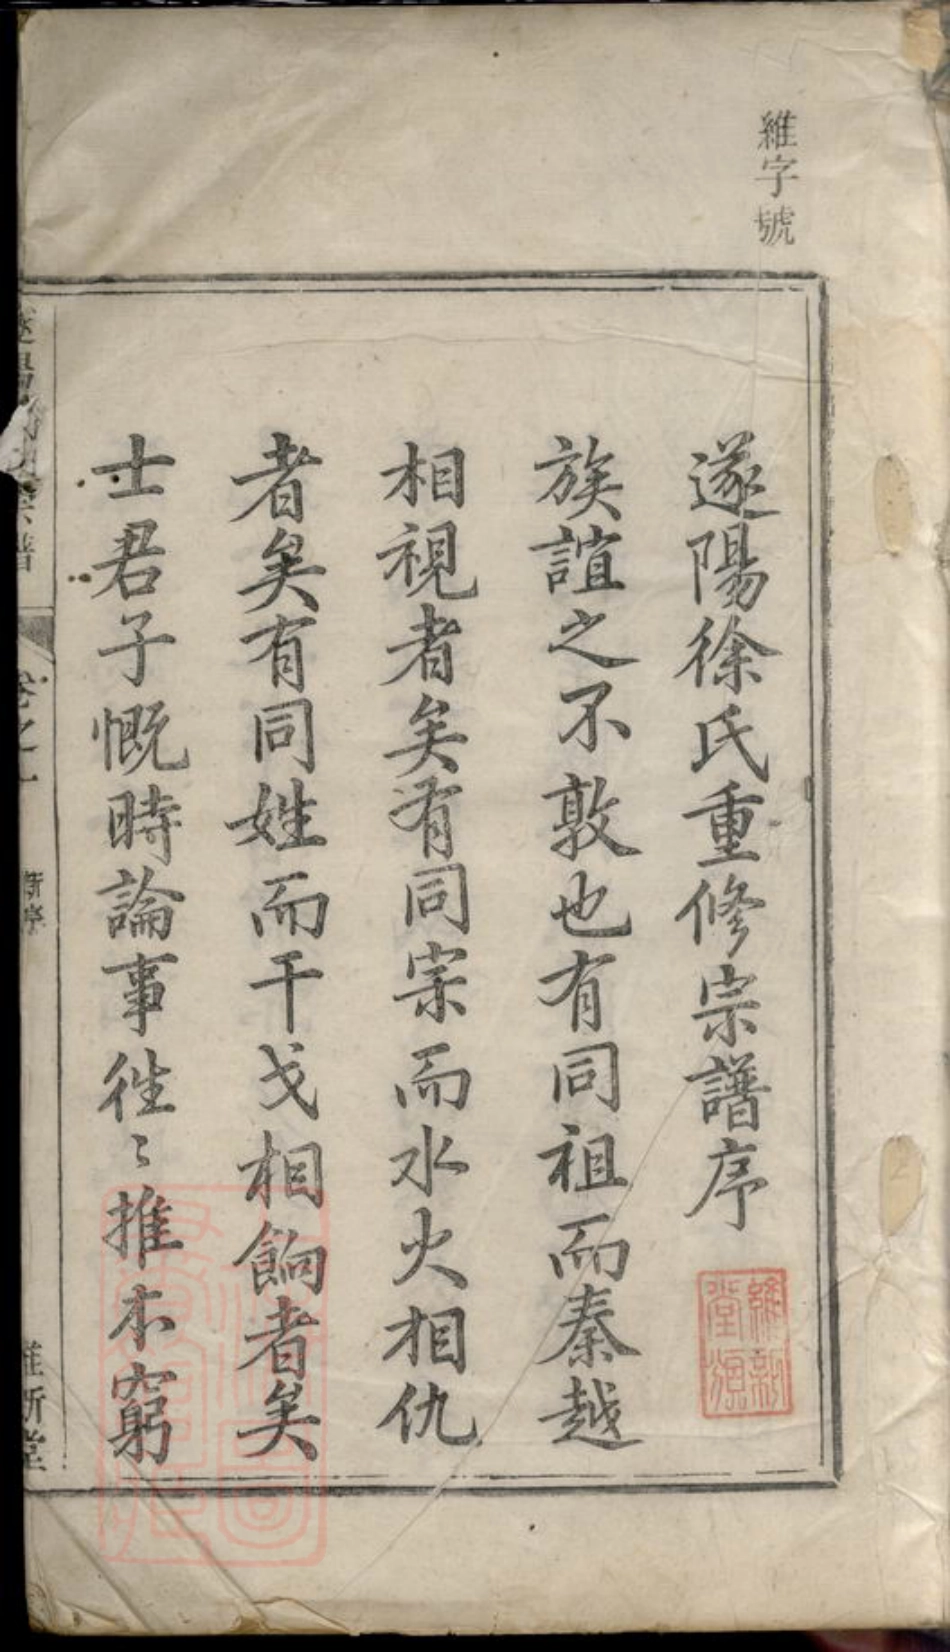 維字號
遂陽徐氏重修宗譜序
族誼之不敦也有同祖而秦越
相視者矣有同宗而水火相仇
者矣有同姓而干戈相餉者矣
士君子慨時論事徃〻推本窮
卷之一
新序
維新堂
維新堂